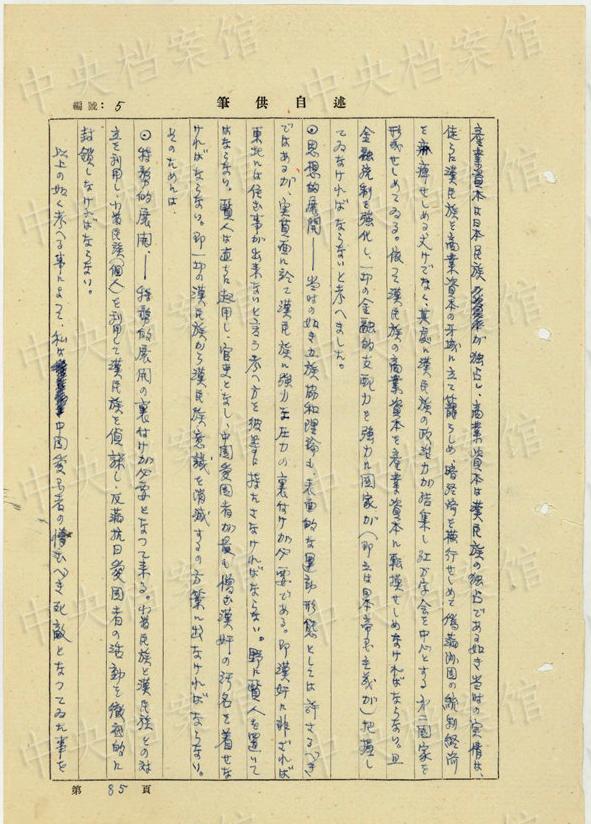 編號：5
筆供自述
産業資本は日本民族が独占し、商業資本は漢民族の独占である如き当時の実情は、
徒らに漢民族を商業資本の牙城に立て籠らしめ、暗経済を横行せしめて偽満州国の統制経済
を麻痺せしめる丈けでなく、其処に漢民族の政治力が結集し紅万字会を中心とする第二国家を
形成せしめてゐる。依って漢民族の商業資本を産業資本に転換せしめなければならない。且
金融統制を強化し、一切の金融的支配力を強力に国家が（即ち日本帝国主義が）把握し
てゐなければならないと考へました。
◎思想的展開——当時の如き五族協和理論も、表面的な運動形態としては許さるべき
ではあるが、実質面に於て漢民族に強力な圧力の裏付けが必要である。即漢奸に非ざれば
東北には住む事が出来ないと言う考へ方を彼等に持たさなければならない。野に賢人を置いて
はならない。賢人は直ちに起用し、官吏となし、中国愛国者が最も憎む漢奸の汚名を着せな
ければならない。即一切の漢民族から漢民族意識を消滅するの方策に出なければならない。
そのためには、
◎特務的展開、——特務的展開の裏付けが必要となって来る。少数民族と漢民族との対
立を利用し、少数民族（個人）を利用して漢民族を偵諜し、反満抗日愛国者の活動を徹底的に
封鎖しなければならない。
以上の如く考へる事によって、私は中国愛国者の憎むべき死敵となってゐた事を
第 85 頁
中央档案馆
中央档案馆
中央档案馆
中央档案馆